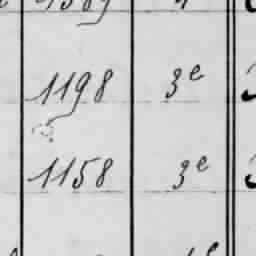 1198 3e
1158 3e